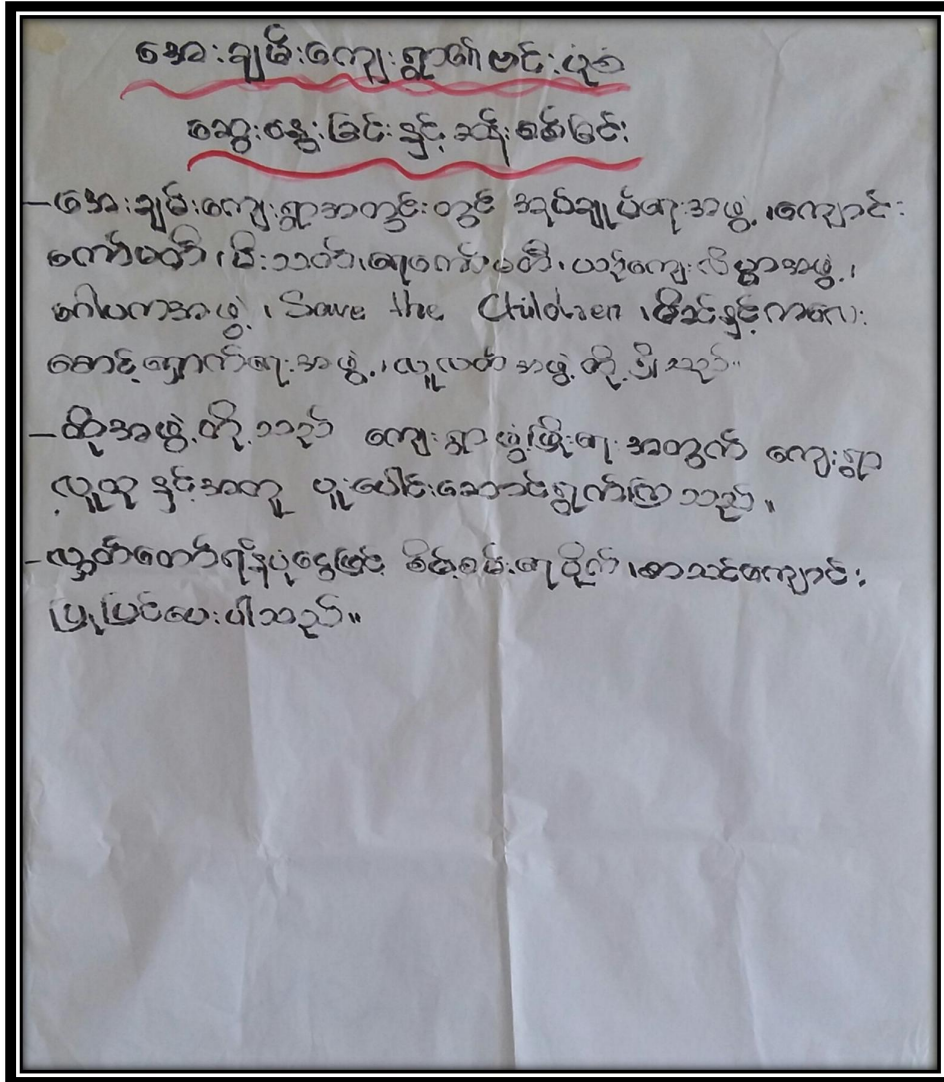 အေးချမ်းကျေးရွာ၏ဗင်းပုံစံ
ဆွေးနွေးခြင်းနှင့်ဆန်းစစ်ခြင်း
–အေးချမ်းကျေးရွာအတွင်းတွင် အုပ်ချုပ်ရေးအဖွဲ့၊ကျောင်း
ကော်မတီ၊မီးသတ်၊ရေကော်မတီ၊ယဉ်ကျေးလိမ္မာအဖွဲ့၊
ဂေါပကအဖွဲ့၊ Save the Children ၊မိခင်နှင့်ကလေး
စောင့်ရှောက်ရေးအဖွဲ့၊လူငယ်အဖွဲ့တို့ရှိသည်။
–ထိုအဖွဲ့တို့သည် ကျေးရွာဖွံ့ဖြိုးရေးအတွက် ကျေးရွာ
လူထုနှင့်အတူ ပူးပေါင်းဆောင်ရွက်ကြသည်။
–လွှတ်တော်ရန်ပုံငွေဖြင့် စိမ့်စမ်းရေပိုက်၊စာသင်ကျောင်း
ပြုပြင်ပေးပါသည်။